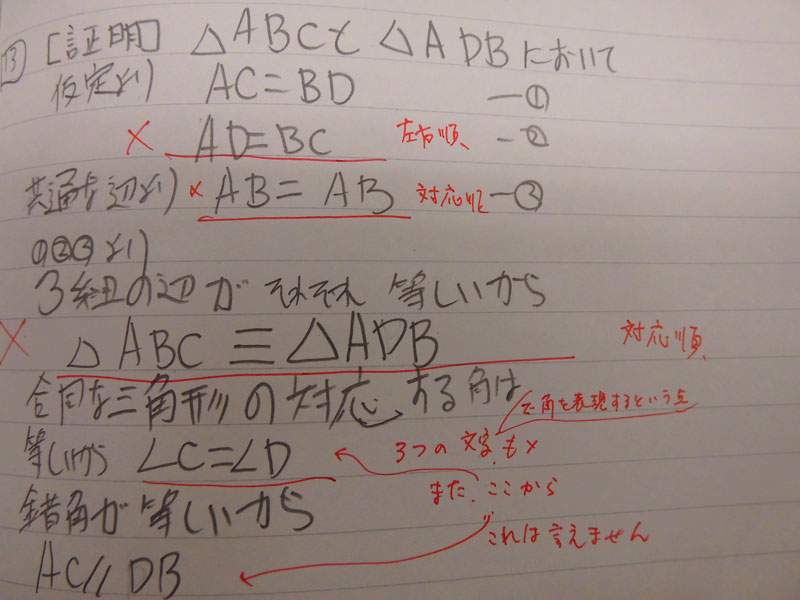 13 [証明] △ABCと△ADBにおいて
仮定より AC=BD ―①
× AD=BC 左右順 ―②
共通な辺より × AB=AB 対応順 ―③
①②③より
3組の辺がそれぞれ等しいから
× △ABC≡△ADB 対応順
合同な三角形の対応する角は
で角を表現するという点
等しいから ∠C=∠D 3つの文字も×
また、ここから
錯角が等しいから
これは言えません
AC//DB